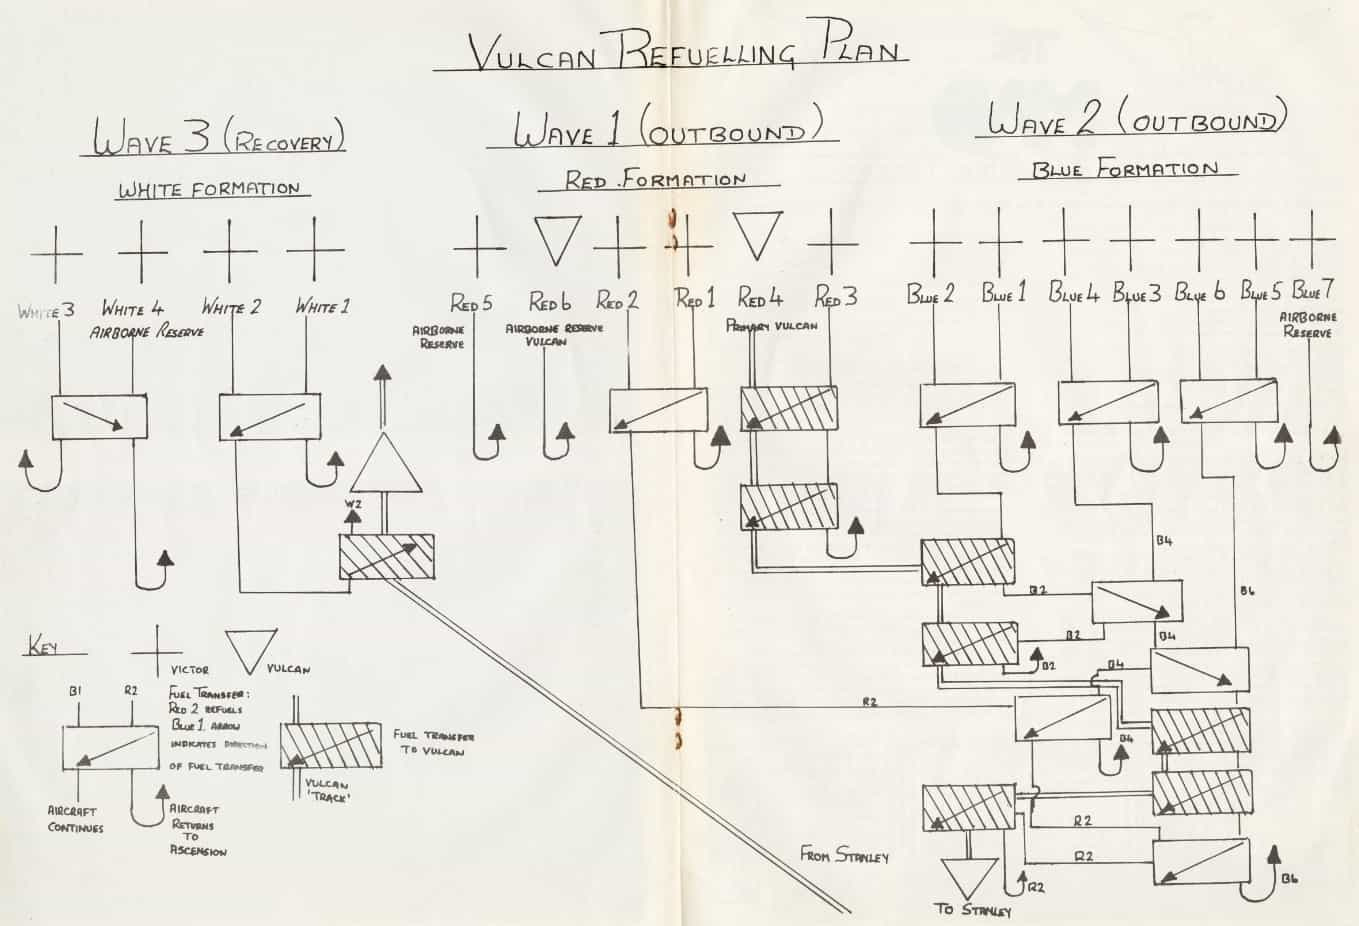 VULCAN REFUELLING PLAN
WAVE 3 (RECOVERY)
WHITE FORMATION
WAVE 1 (OUTBOUND)
RED FORMATION
WAVE 2 (OUTBOUND)
BLUE FORMATION
WHITE 3
WHITE 4
AIRBORNE RESERVE
WHITE 2
WHITE 1
RED 5
AIRBORNE
RESERVE
RED 6
AIRBORNE RESERVE
VULCAN
RED 2
RED 1
RED 4
PRIMARY VULCAN
RED 3
BLUE 2
BLUE 1
BLUE 4
BLUE 3
BLUE 6
BLUE 5
BLUE 7
AIRBORNE
RESERVE
W2
B4
B2
B6
B2
B4
B2
B4
R2
B4
R2
R2
B6
R2
FROM STANLEY
TO STANLEY
KEY
VICTOR
VULCAN
B1
R2
FUEL TRANSFER:
RED 2 REFUELS
BLUE 1. ARROW
INDICATES DIRECTION
OF FUEL TRANSFER
AIRCRAFT
CONTINUES
AIRCRAFT
RETURNS
TO
ASCENSION
FUEL TRANSFER
TO VULCAN
VULCAN
'TRACK'